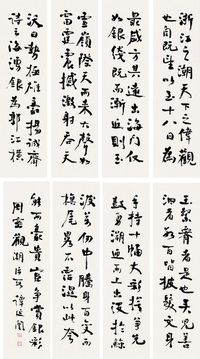 浙江之潮天下之偉觀
也自既望以至十八日為
最盛方其遠出海門僅
如銀綫既而漸近則玉
城雪嶺際天而來大聲如
雷霆震撼激射吞天
沃日勢極雄豪楊誠齋
詩云海湧銀為郭江橫
玉繫腰者是也吳兒善
泅者數百皆披髮文身
手持十幅大彩旗爭先
鼓勇溯迎而上出沒於鯨
波萬仞中騰身百變而
旗尾略不霑濕以此夸
能而豪貴宦爭賞銀彩
周密觀潮 譚延闓